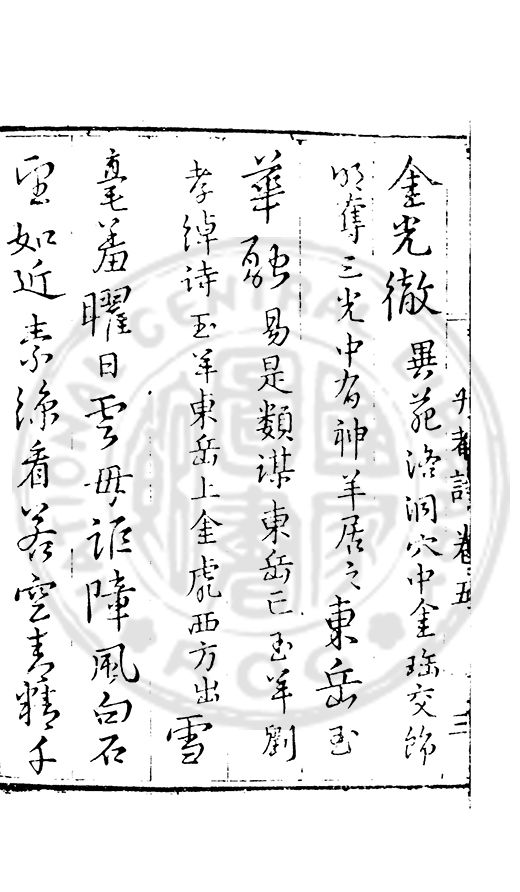 卷五 三
金光徹 異苑洛洞穴中金瑤交飾
明奪三光中有神羊居之東岳玉
華融 易是類謀東岳亡玉羊劉
孝綽詩玉羊東岳上金虎西方出雪
毫羞曜日雲母詎障風白石
望如近素絲看若空青精千